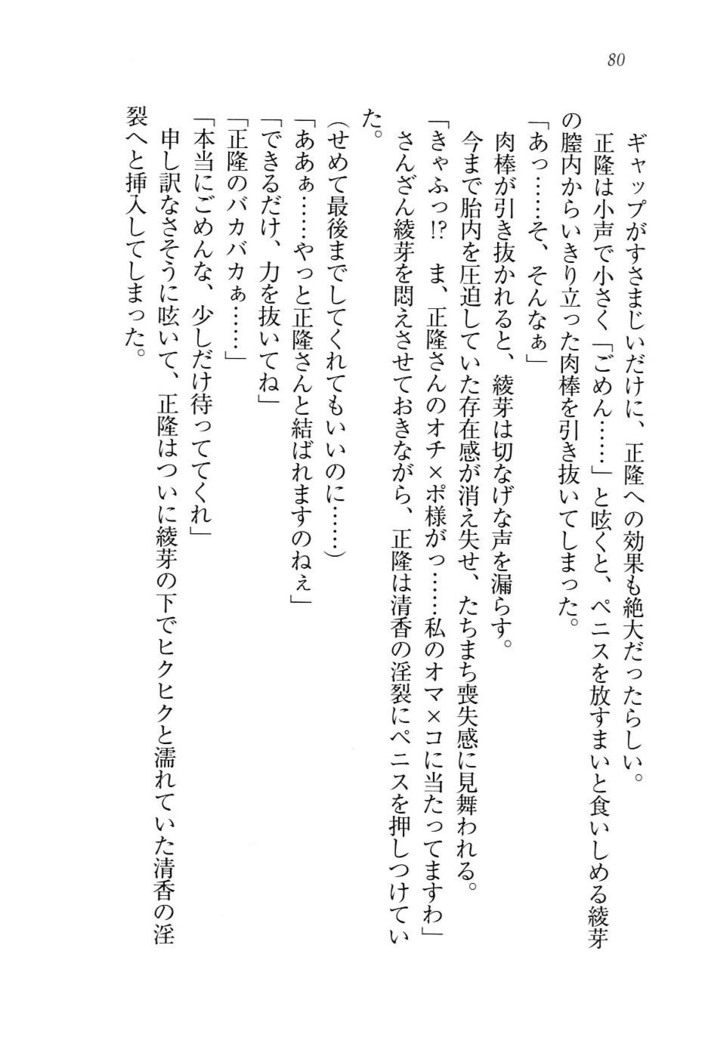 80
ギャップがすさまじいだけに、正隆への効果も絶大だったらしい。
正隆は小声で小さく「ごめん……」と呟くと、ペニスを放すまいと食いしめる綾芽
の膣内からいきり立った肉棒を引き抜いてしまった。
「あっ……そ、そんなぁ」
肉棒が引き抜かれると、綾芽は切なげな声を漏らす。
今まで胎内を圧迫していた存在感が消え失せ、たちまち喪失感に見舞われる。
「きゃふっ!? ま、正隆さんのオチ×ポ様がっ……私のオマ×コに当たってますわ」
さんざん綾芽を悶えさせておきながら、正隆は清香の淫裂にペニスを押しつけてい
た。
(せめて最後までしてくれてもいいのに……)
「ああぁ……やっと正隆さんと結ばれますのねぇ」
「できるだけ、力を抜いてね」
「正隆のバカバカぁ……」
「本当にごめんな、少しだけ待っててくれ」
申し訳なさそうに呟いて、正隆はついに綾芽の下でヒクヒクと濡れていた清香の淫
裂へと挿入してしまった。